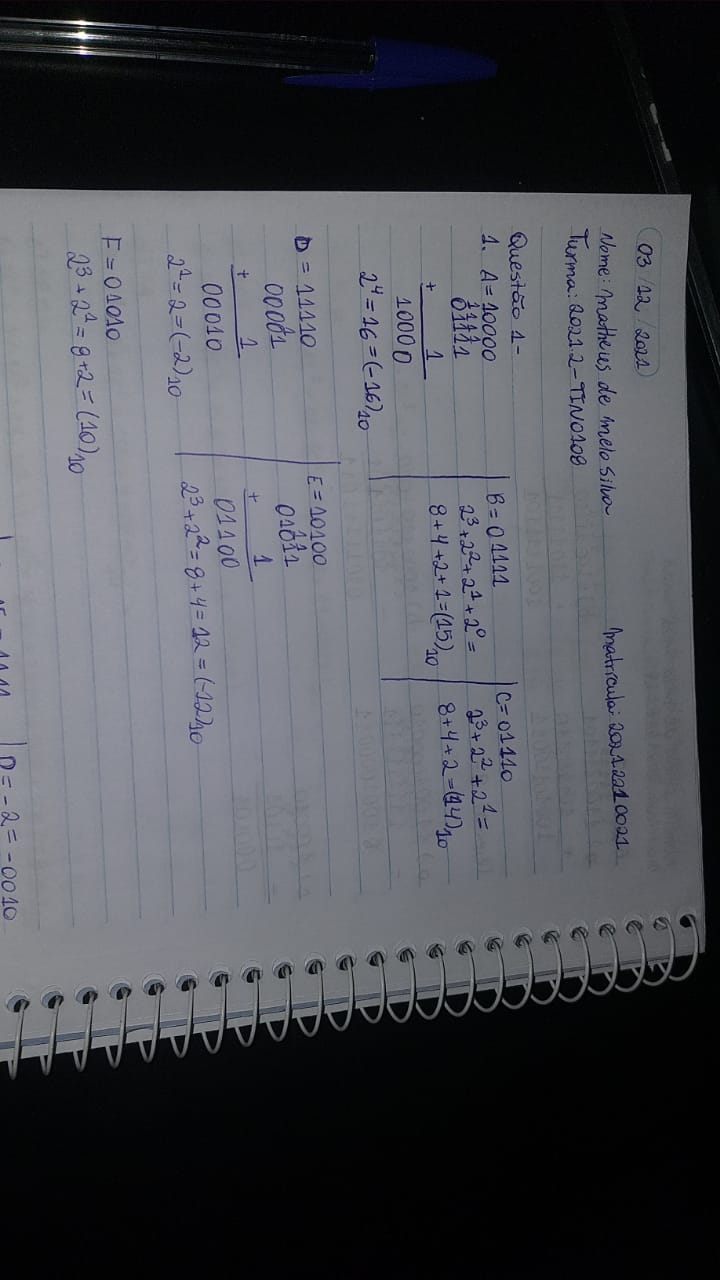 03/12/2021
Nome: Matheus de melo silva Matrícula: 20212210021
Turma: 2021.2 - TIN0108
Questão 1 -
1. A = 10000
1111
01111
+ 1
10000
2⁴ = 16 = (-16)₁₀
B = 01111
2³ + 2² + 2¹ + 2⁰ =
8 + 4 + 2 + 1 = (15)₁₀
C = 01110
2³ + 2² + 2¹ =
8 + 4 + 2 = (14)₁₀
D = 11110
1
00001
+ 1
00010
2¹ = 2 = (-2)₁₀
E = 10100
11
01011
+ 1
01100
2³ + 2² = 8 + 4 = 12 = (-12)₁₀
F = 01010
2³ + 2¹ = 8 + 2 = (10)₁₀
D = -2 = -0010